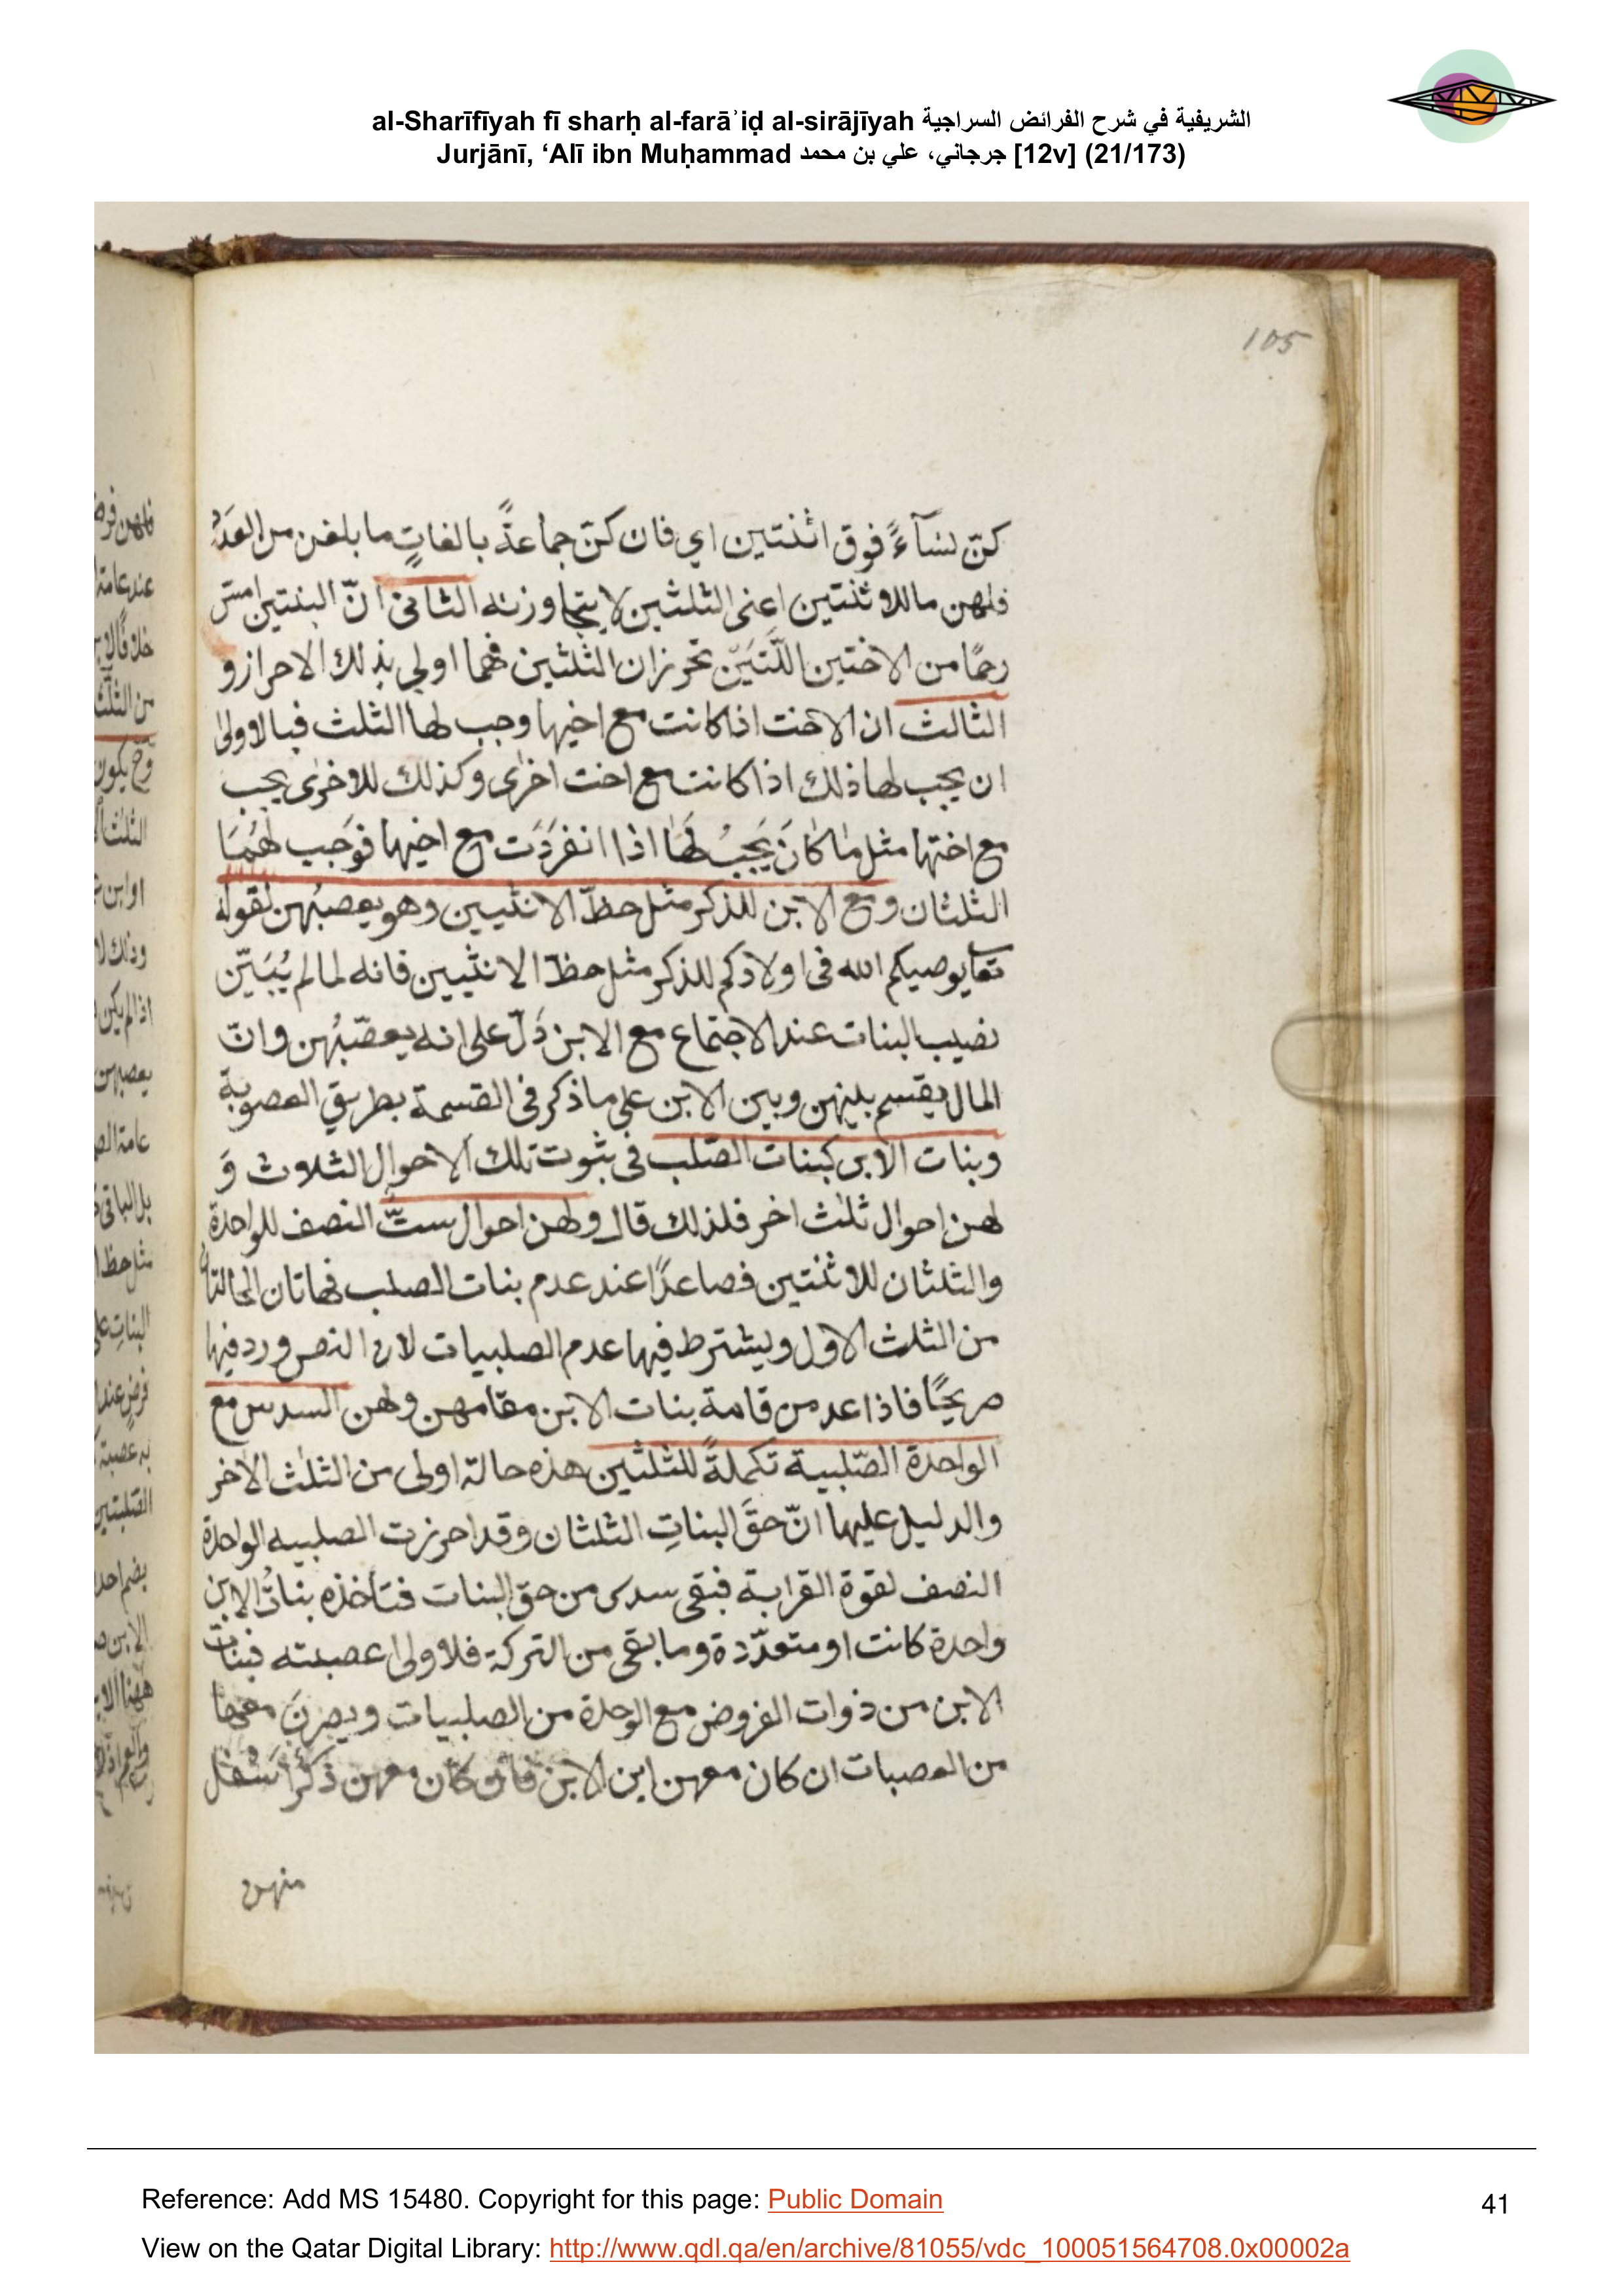 al-Sharīfīyah fī sharḥ al-farāʾiḍ al-sirājīyah الشريفية في شرح الفرائض السراجية
Jurjānī, ‘Alī ibn Muḥammad جرجاني، علي بن محمد [12v] (21/173)
105
كنّ نسآءً فوق اثنتين اي فان كنّ جماعةً بالغاتٍ ما بلغن من العدد
فلهن ما للاثنتين اعنى الثلثين لا يتجاوزنه الثانى انّ البنتين امسّ
رحمًا من الاختين اللّتين تحرزان الثلثين فهما اولى بذلك الاحراز و
الثالث ان الاخت اذا كانت مع اخيها وجب لها الثلث فبالاولى
ان يجب لها ذلك اذا كانت مع اخت اخرى وكذلك للاخرى يجب
مع اختها مثل ما كانَ يَجبُ لَهَا اذا انفرَدَت مع اخيها فوَجب لهُمَا
الثلثان ومع الابن للذكر مثل حظّ الانثيين وهو يعصبُهن لقوله
تعا يوصيكم الله فى اولادكم للذكر مثل حظّ الانثيين فانه لما لم يُبَيّن
نصيب البنات عند الاجتماع مع الابن دَلّ على انه يعصّبُهن وانّ
المال يقسم بينهن وبين الابن على ما ذكر فى القسمة بطريق العصوبة
وبنات الابن كبنات الصّلب فى ثبوت تلك الاحوال الثلاث وَ
لهن احوال ثلٰث اخر فلذلك قال ولهن احوال ستّ النصف للواحدة
والثلثان للاثنتين فصاعدًا عند عدم بنات الصلب فهاتان الحالتان
من الثلث الاول ويشترط فيها عدم الصلبيات لان النص ورد فيها
صريحًا فاذا عدمن قامة بنات الابن مقامهن ولهن السدس مع
الواحدة الصّلبية تكملةً للثلثين هذه حالة اولى من الثلٰث الاخر
والدليل عليها انّ حقَّ البناتِ الثلثان وقد احرزت الصلبيه الواحدة
النصف لقوة القرابة فبقى سدس من حق البنات فتأخذه بناتُ الابن
واحدة كانت او متعدّدة وما بقى من التركة فلاولى عصبته فبنات
الابن من ذوات الفروض مع الوحدة من الصلبيات ويصرنَ معها
من العصبات ان كان معهن ابن الابن فان كان معهن ذكرًا سْفل
منهن
Reference: Add MS 15480. Copyright for this page: Public Domain
41
View on the Qatar Digital Library: http://www.qdl.qa/en/archive/81055/vdc_100051564708.0x00002a